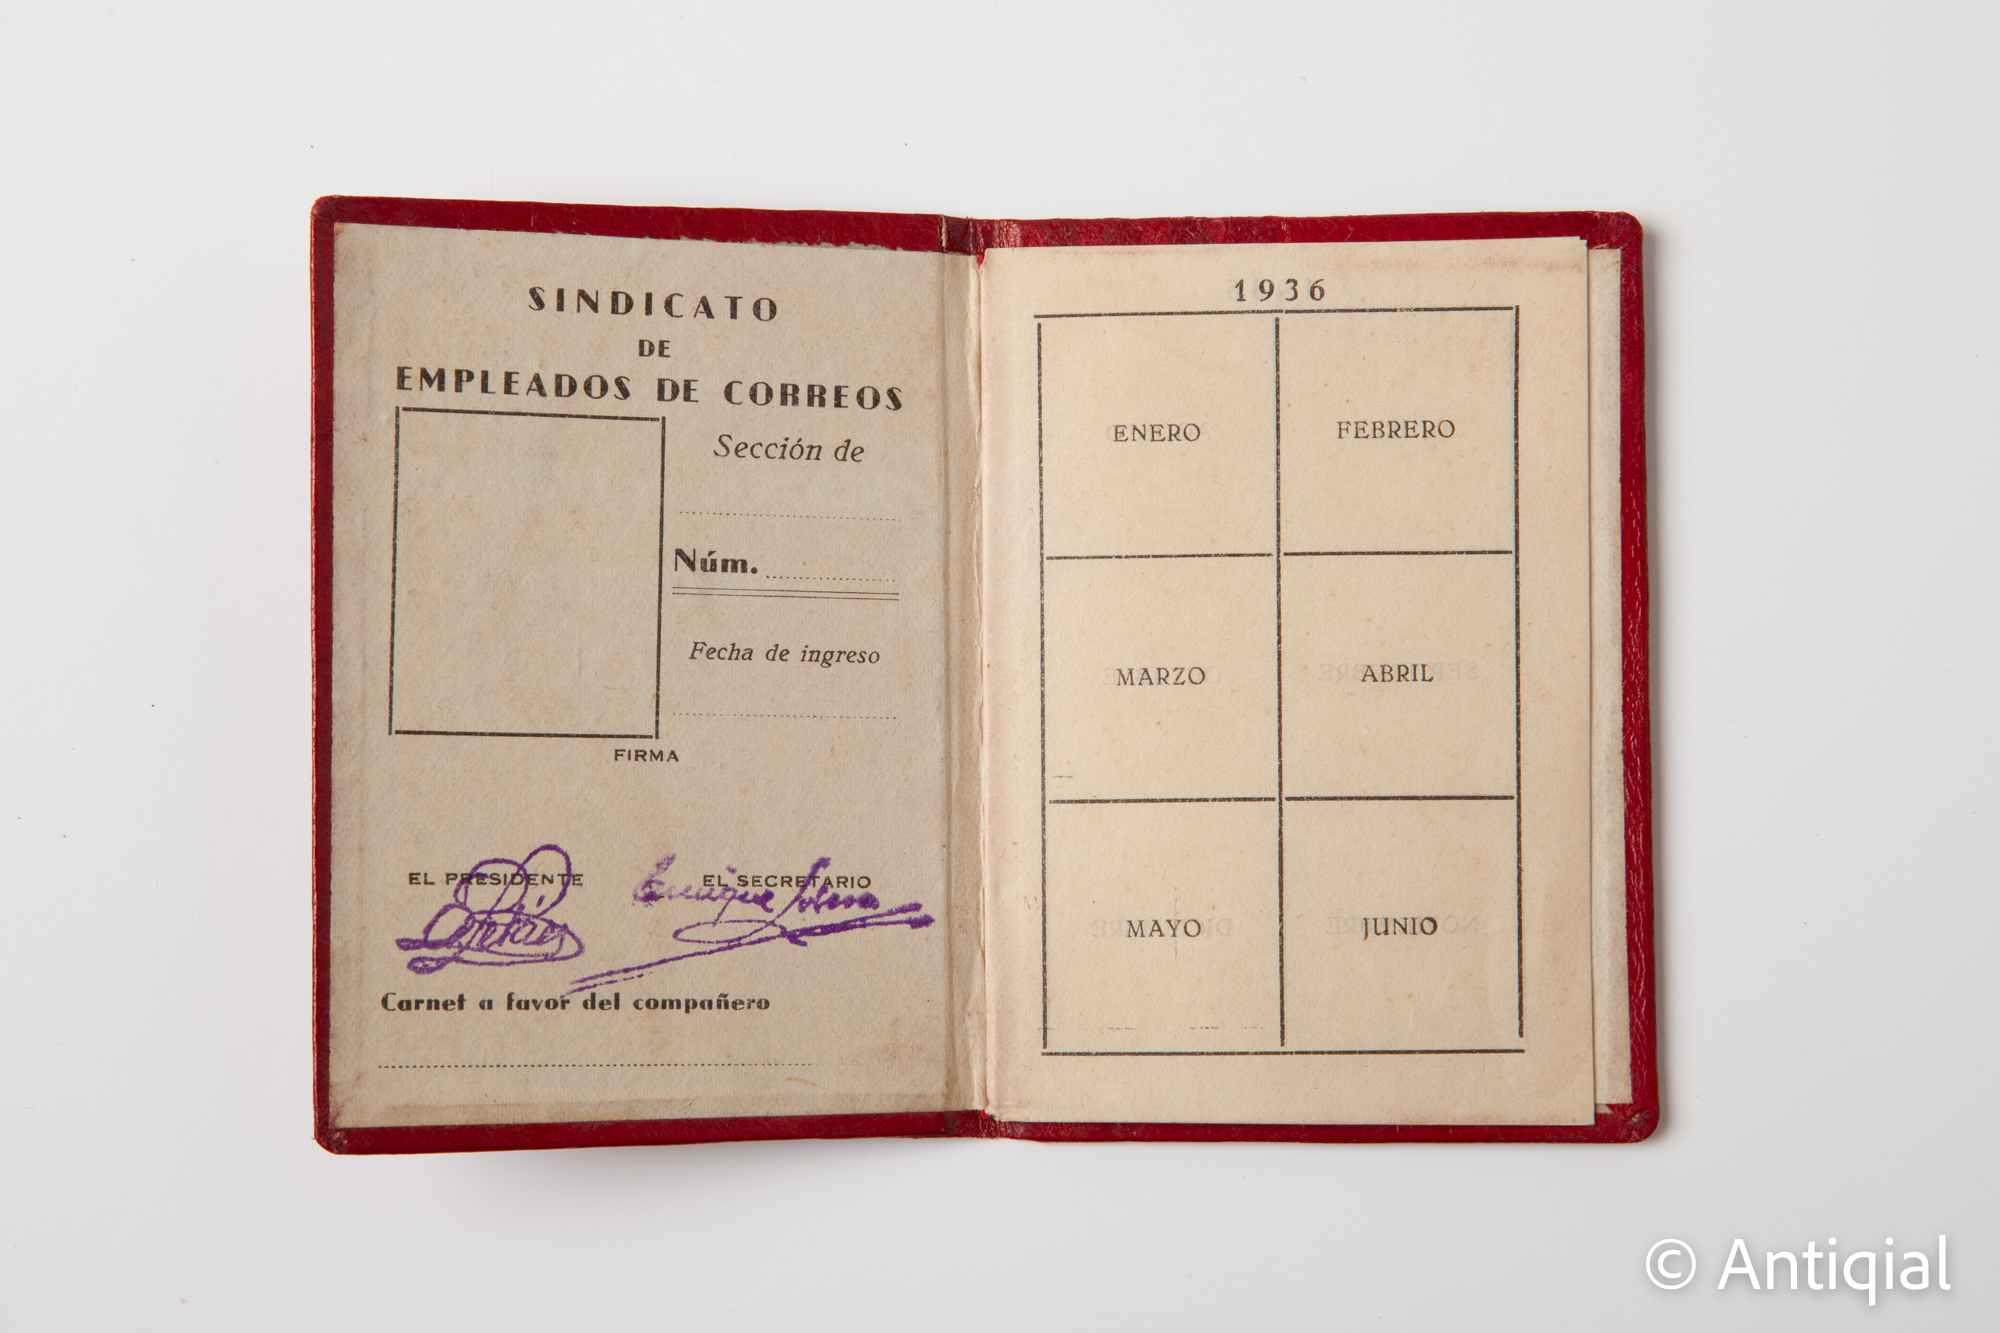 SINDICATO
DE
EMPLEADOS DE CORREOS
Sección de
Núm.
Fecha de ingreso
FIRMA
EL PRESIDENTE EL SECRETARIO
Enrique
Carnet a favor del compañero
1936
ENERO FEBRERO
MARZO ABRIL
MAYO JUNIO
© Antiqial